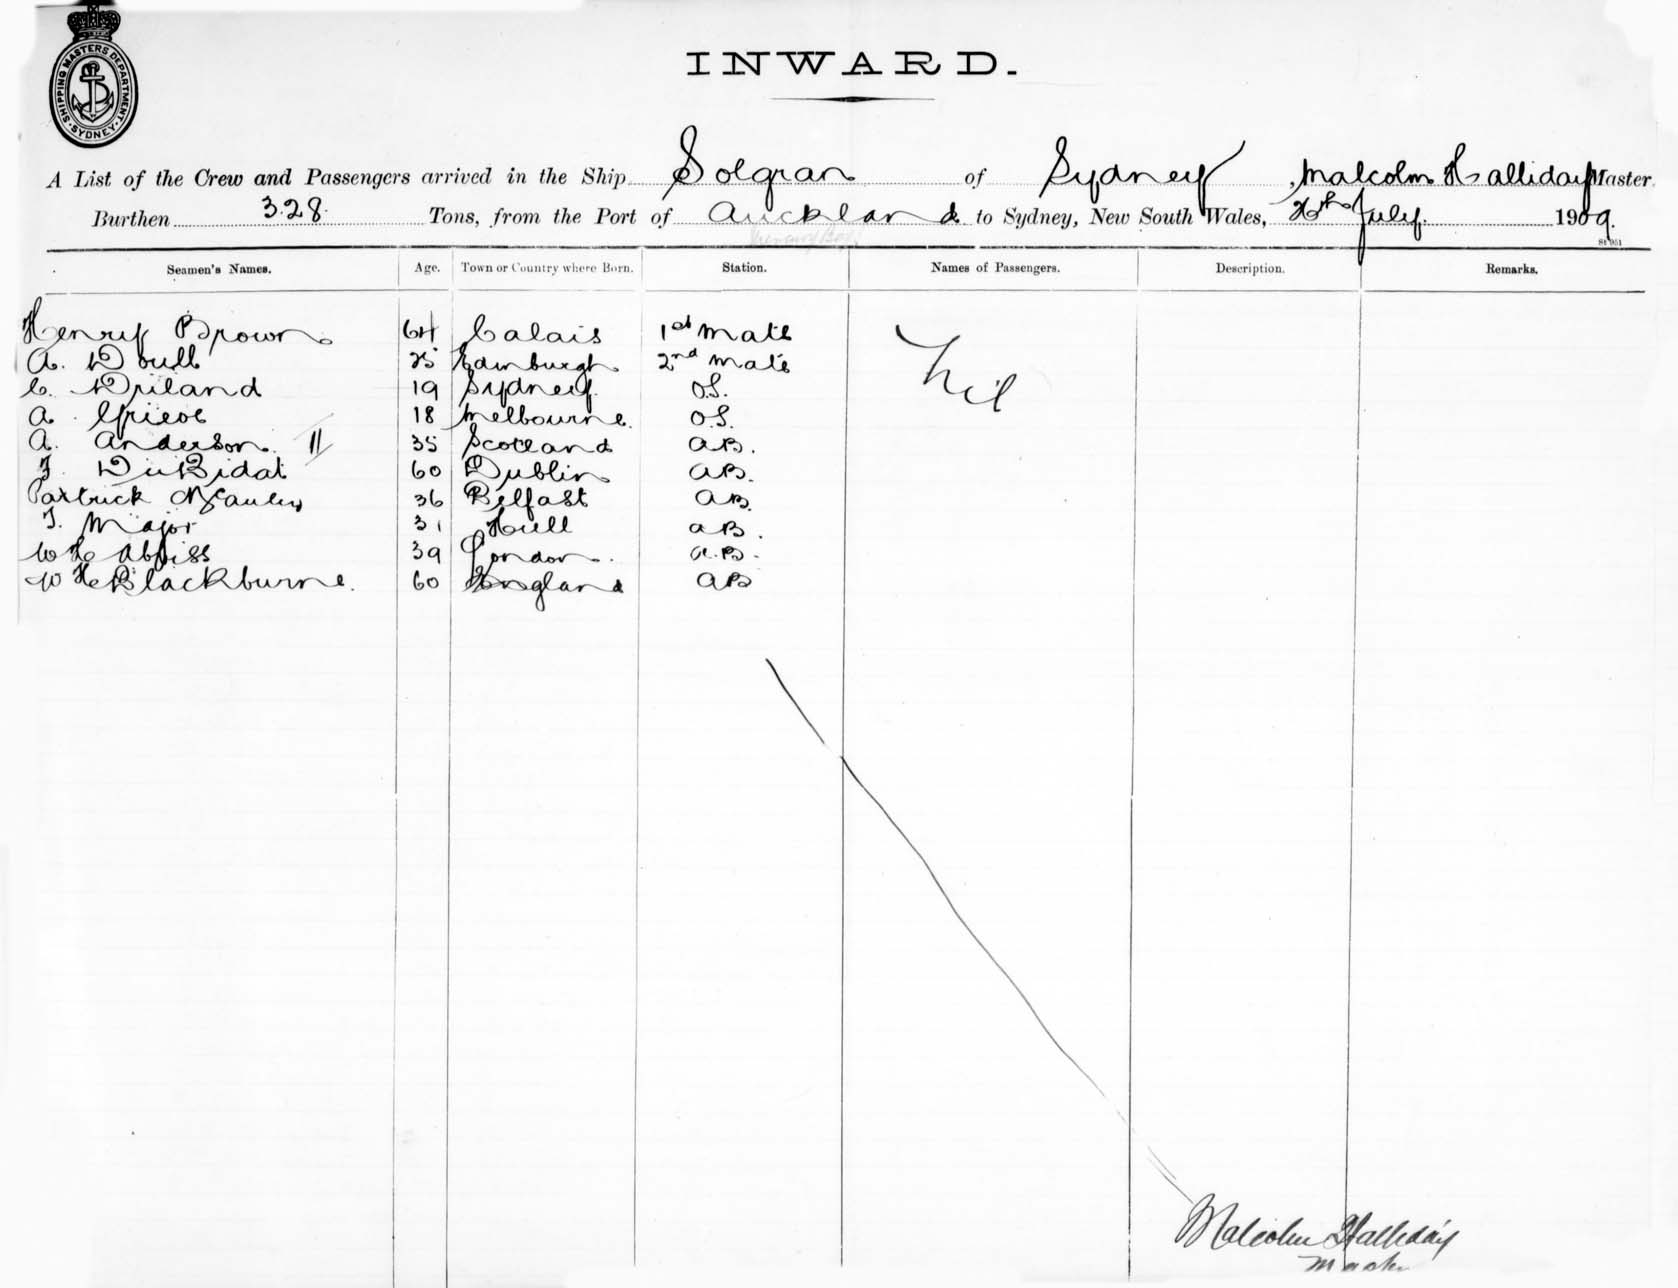 SHIPPING MASTERS DEPARTMENT
SYDNEY
INWARD.
A List of the Crew and Passengers arrived in the Ship Solgran of Sydney, Malcolm Halliday Master
Burthen 328 Tons, from the Port of Auckland to Sydney, New South Wales, July 1909.
Seamen's Names. Age. Town or Country where Born. Station. Names of Passengers. Description. Remarks.
Henry Brown 64 Calais 1st Mate Nil
A. Doull 25 Edinburgh 2nd Mate
C. Driland 19 Sydney O.S.
A. 18 Melbourne. O.S.
A. Anderson. 35 Scotland AB.
DuBidat 60 Dublin AB.
Patrick McCauley 36 Belfast AB.
Major 31 Hull AB.
W H 39 London. A.B.
W H Blackburne. 60 England AB
Malcolm Halliday
Master